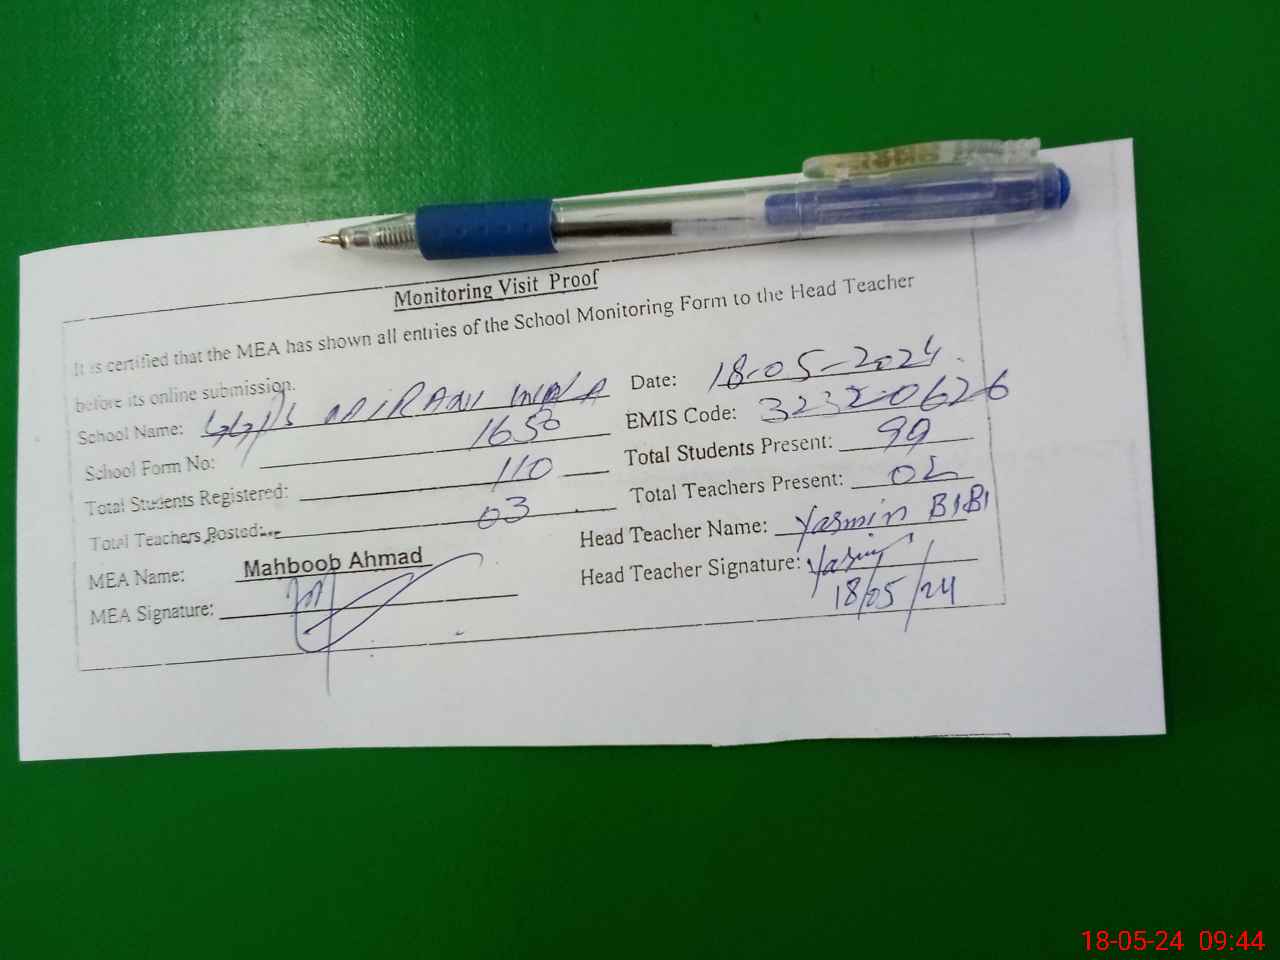 Monitoring Visit Proof
It is certified that the MEA has shown all entries of the School Monitoring Form to the Head Teacher
before its online submission.
School Name: MIRANI
Date: 18-05-2024
School Form No: 1650
EMIS Code: 32320626
Total Students Registered: 110
Total Students Present: 99
Total Teachers Posted: 03
Total Teachers Present: 02
MEA Name: Mahboob Ahmad
Head Teacher Name: Yasmin BIBI
MEA Signature:
Head Teacher Signature: Yasmin
18/05/24
18-05-24 09:44